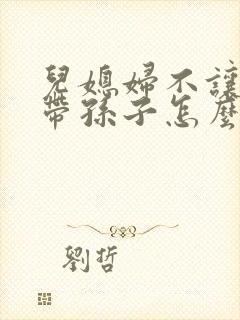 兒媳婦不讓
帶孫子怎麼
劉哲